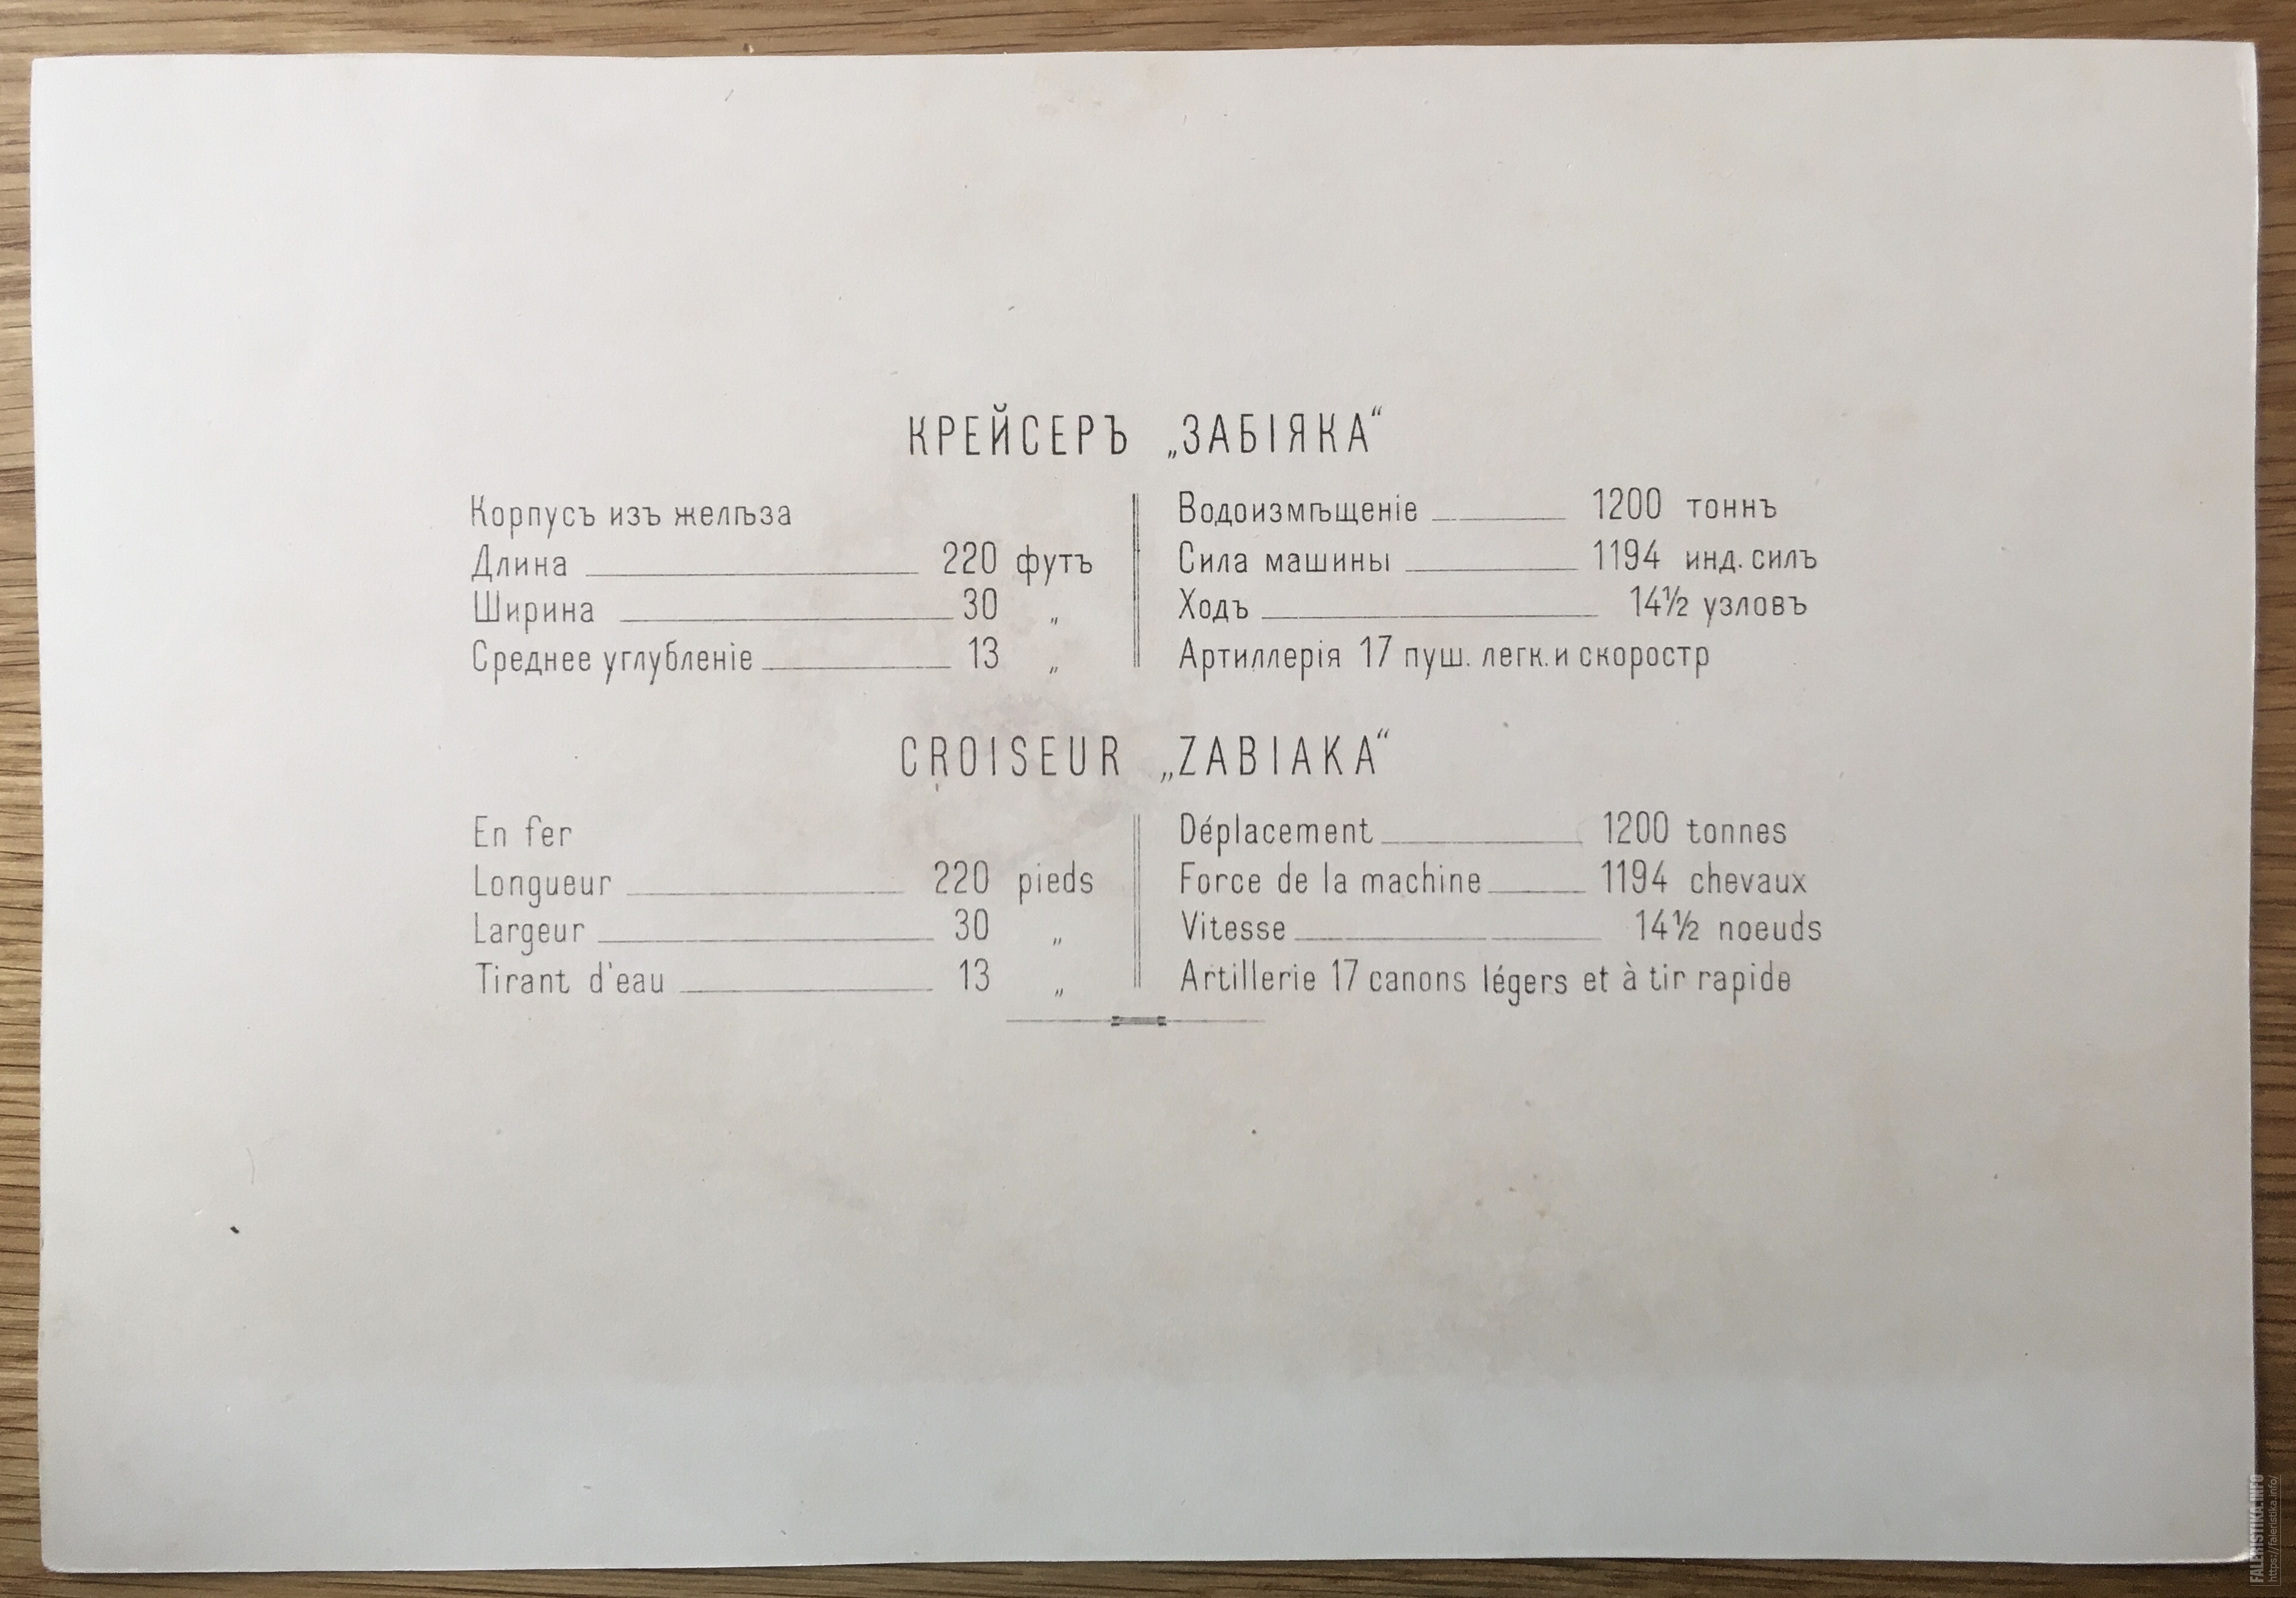 КРЕЙСЕРЪ „ЗАБІЯКА“
Корпусъ изъ желѣза
Длина 220 футъ
Ширина 30 „
Среднее углубленіе 13 „
Водоизмѣщеніе 1200 тоннъ
Сила машины 1194 инд. силъ
Ходъ 14½ узловъ
Артиллерія 17 пуш. легк. и скоростр
CROISEUR „ZABIAKA“
En fer
Longueur 220 pieds
Largeur 30 „
Tirant d'eau 13 „
Déplacement 1200 tonnes
Force de la machine 1194 chevaux
Vitesse 14½ noeuds
Artillerie 17 canons légers et à tir rapide
FALERISTIKA.INFO
https://faleristika.info/